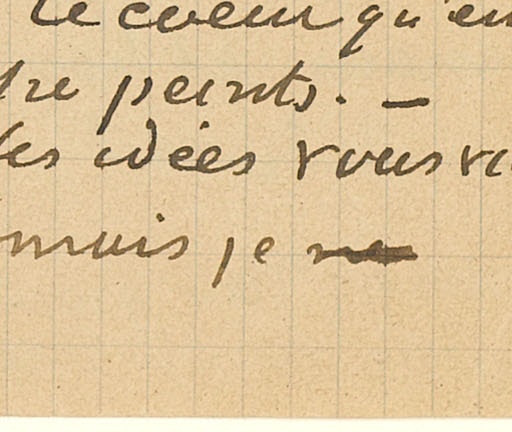 le coeur qu'en
tre peints. —
les idées vous vi
mais je